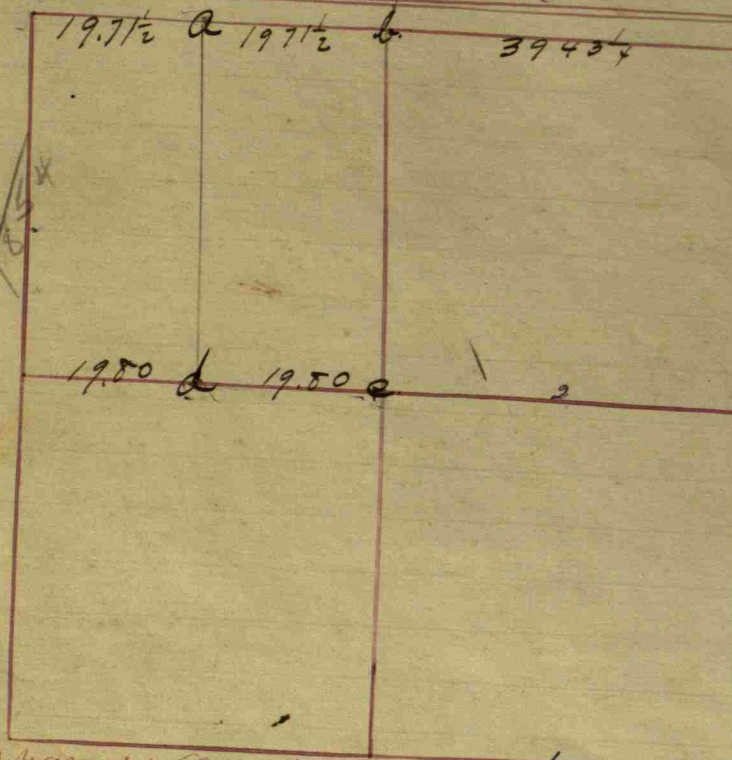 19.71½ a 1971½ b. 39 43¼
19.80 d 19.80 e. 2